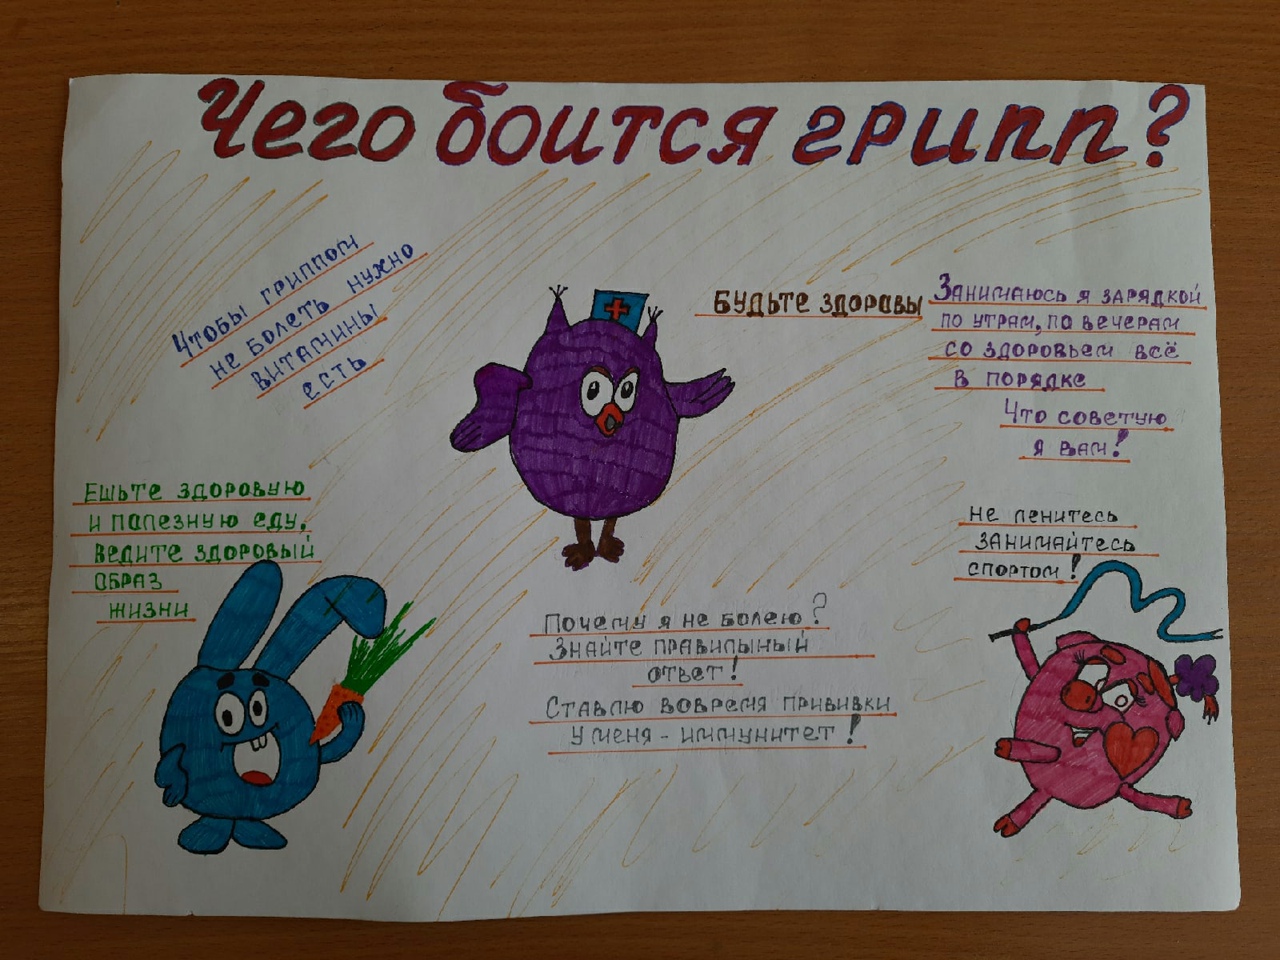 Чего боится грипп?
Чтобы гриппом
не болеть нужно
витамины
есть
Будьте здоровы
Занимаюсь я зарядкой
по утрам, по вечерам
со здоровьем всё
в порядке
Что советую
я вам!
Ешьте здоровую
и полезную еду,
ведите здоровый
образ
жизни
не ленитесь
занимайтесь
спортом!
Почему я не болею?
Знайте правильный
ответ!
Ставлю вовремя прививки
у меня - иммунитет!